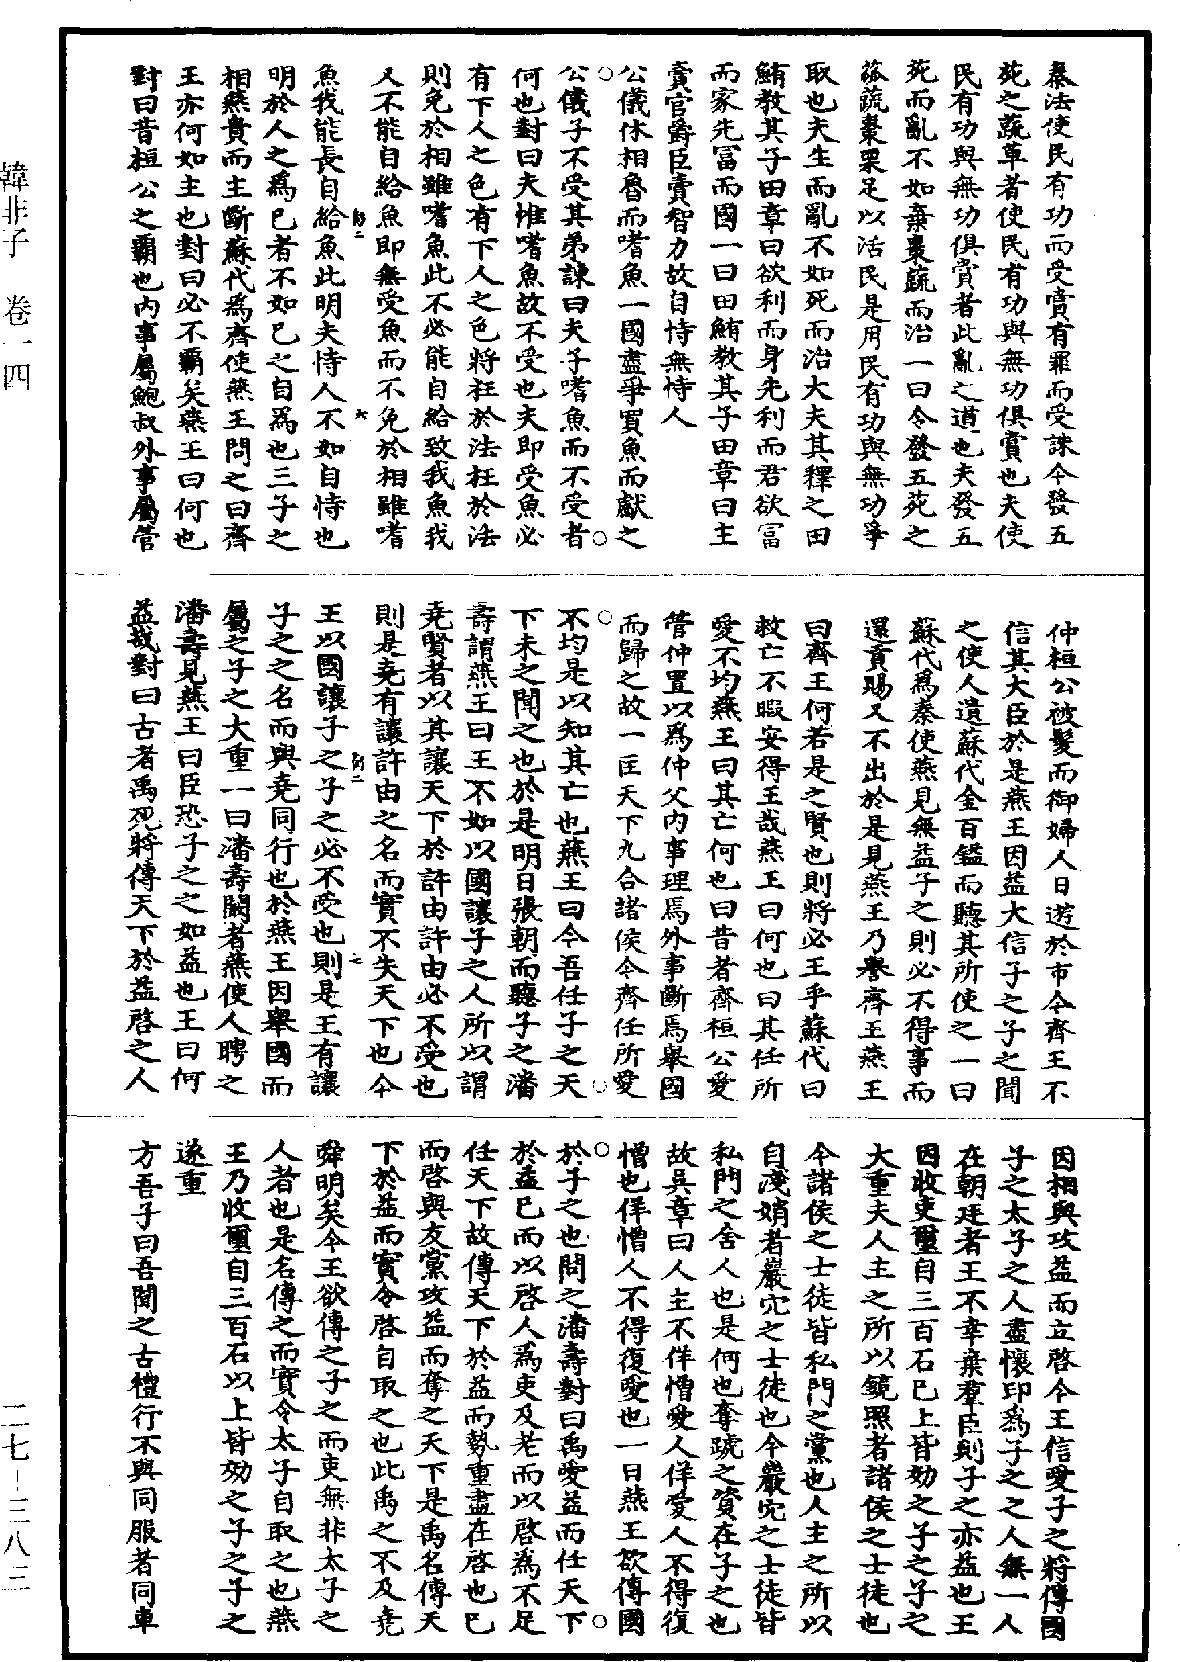 秦法使民有功而受賞有罪而受誅今發五
苑之蔬草者使民有功與無功俱賞也夫使
民有功與無功俱賞者此亂之道也夫發五
苑而亂不如棄棗蔬而治一曰令發五苑之
蓏蔬棗栗足以活民是用民有功與無功爭
取也夫生而亂不如死而治大夫其釋之田
鮪教其子田章曰欲利而身先利而君欲富
而家先富而國一曰田鮪教其子田章曰主
賣官爵臣賣智力故自恃無恃人
公儀休相魯而嗜魚一國盡爭買魚而獻之
公儀子不受其弟諫曰夫子嗜魚而不受者
何也對曰夫惟嗜魚故不受也夫即受魚必
有下人之色有下人之色將枉於法枉於法
則免於相雖嗜魚此不必能自給致我魚我
又不能自給魚即無受魚而不免於相雖嗜
魚我能長自給魚此明夫恃人不如自恃也
明於人之爲己者不如己之自爲也三子之
相燕貴而主斷蘇代爲齊使燕王問之曰齊
王亦何如主也對曰必不霸矣燕王曰何也
對曰昔桓公之霸也內事屬鮑叔外事屬管
仲桓公被髮而御婦人日遊於市今齊王不
信其大臣於是燕王因益大信子之子之聞
之使人遺蘇代金百鎰而聽其所使之一曰
蘇代爲秦使燕見無益子之則必不得事而
還貢賜又不出於是見燕王乃譽齊王燕王
曰齊王何若是之賢也則將必王乎蘇代曰
救亡不暇安得王哉燕王曰何也曰其任所
愛不均燕王曰其亡何也曰昔者齊桓公愛
管仲置以爲仲父內事理焉外事斷焉舉國
而歸之故一匡天下九合諸侯今齊任所愛
不均是以知其亡也燕王曰今吾任子之天
下未之聞之也於是明日張朝而聽子之潘
壽謂燕王曰王不如以國讓子之人所以謂
堯賢者以其讓天下於許由許由必不受也
則是堯有讓許由之名而實不失天下也今
王以國讓子之子之必不受也則是王有讓
子之之名而與堯同行也於燕王因舉國而
屬之子之大重一曰潘壽闞者燕使人聘之
潘壽見燕王曰臣恐子之之如益也王曰何
益哉對曰古者禹死將傳天下於益啓之人
因相與攻益而立啓今王信愛子之將傳國
子之太子之人盡懷印爲子之之人無一人
在朝廷者王不幸棄群臣則子之亦益也王
因收吏璽自三百石已上皆効之子之子之
大重夫人主之所以鏡照者諸侯之士徒也
今諸侯之士徒皆私門之黨也人主之所以
自淺娋者巖穴之士徒也今巖穴之士徒皆
私門之舍人也是何也奪䖈之資在子之也
故吳章曰人主不佯憎愛人佯愛人不得復
憎也佯憎人不得復愛也一曰燕王欲傳國
於子之也問之潘壽對曰禹愛益而任天下
於益已而以啓人爲吏及老而以啓爲不足
任天下故傳天下於益而勢重盡在啓也已
而啓與友黨攻益而奪之天下是禹名傳天
下於益而實令啓自取之也此禹之不及堯
舜明矣今王欲傳之子之而吏無非太子之
人者也是名傳之而實令太子自取之也燕
王乃收璽自三百石以上皆効之子之子之
遂重
方吾子曰吾聞之古禮行不與同服者同車
韓非子　卷一四
二七-三八三